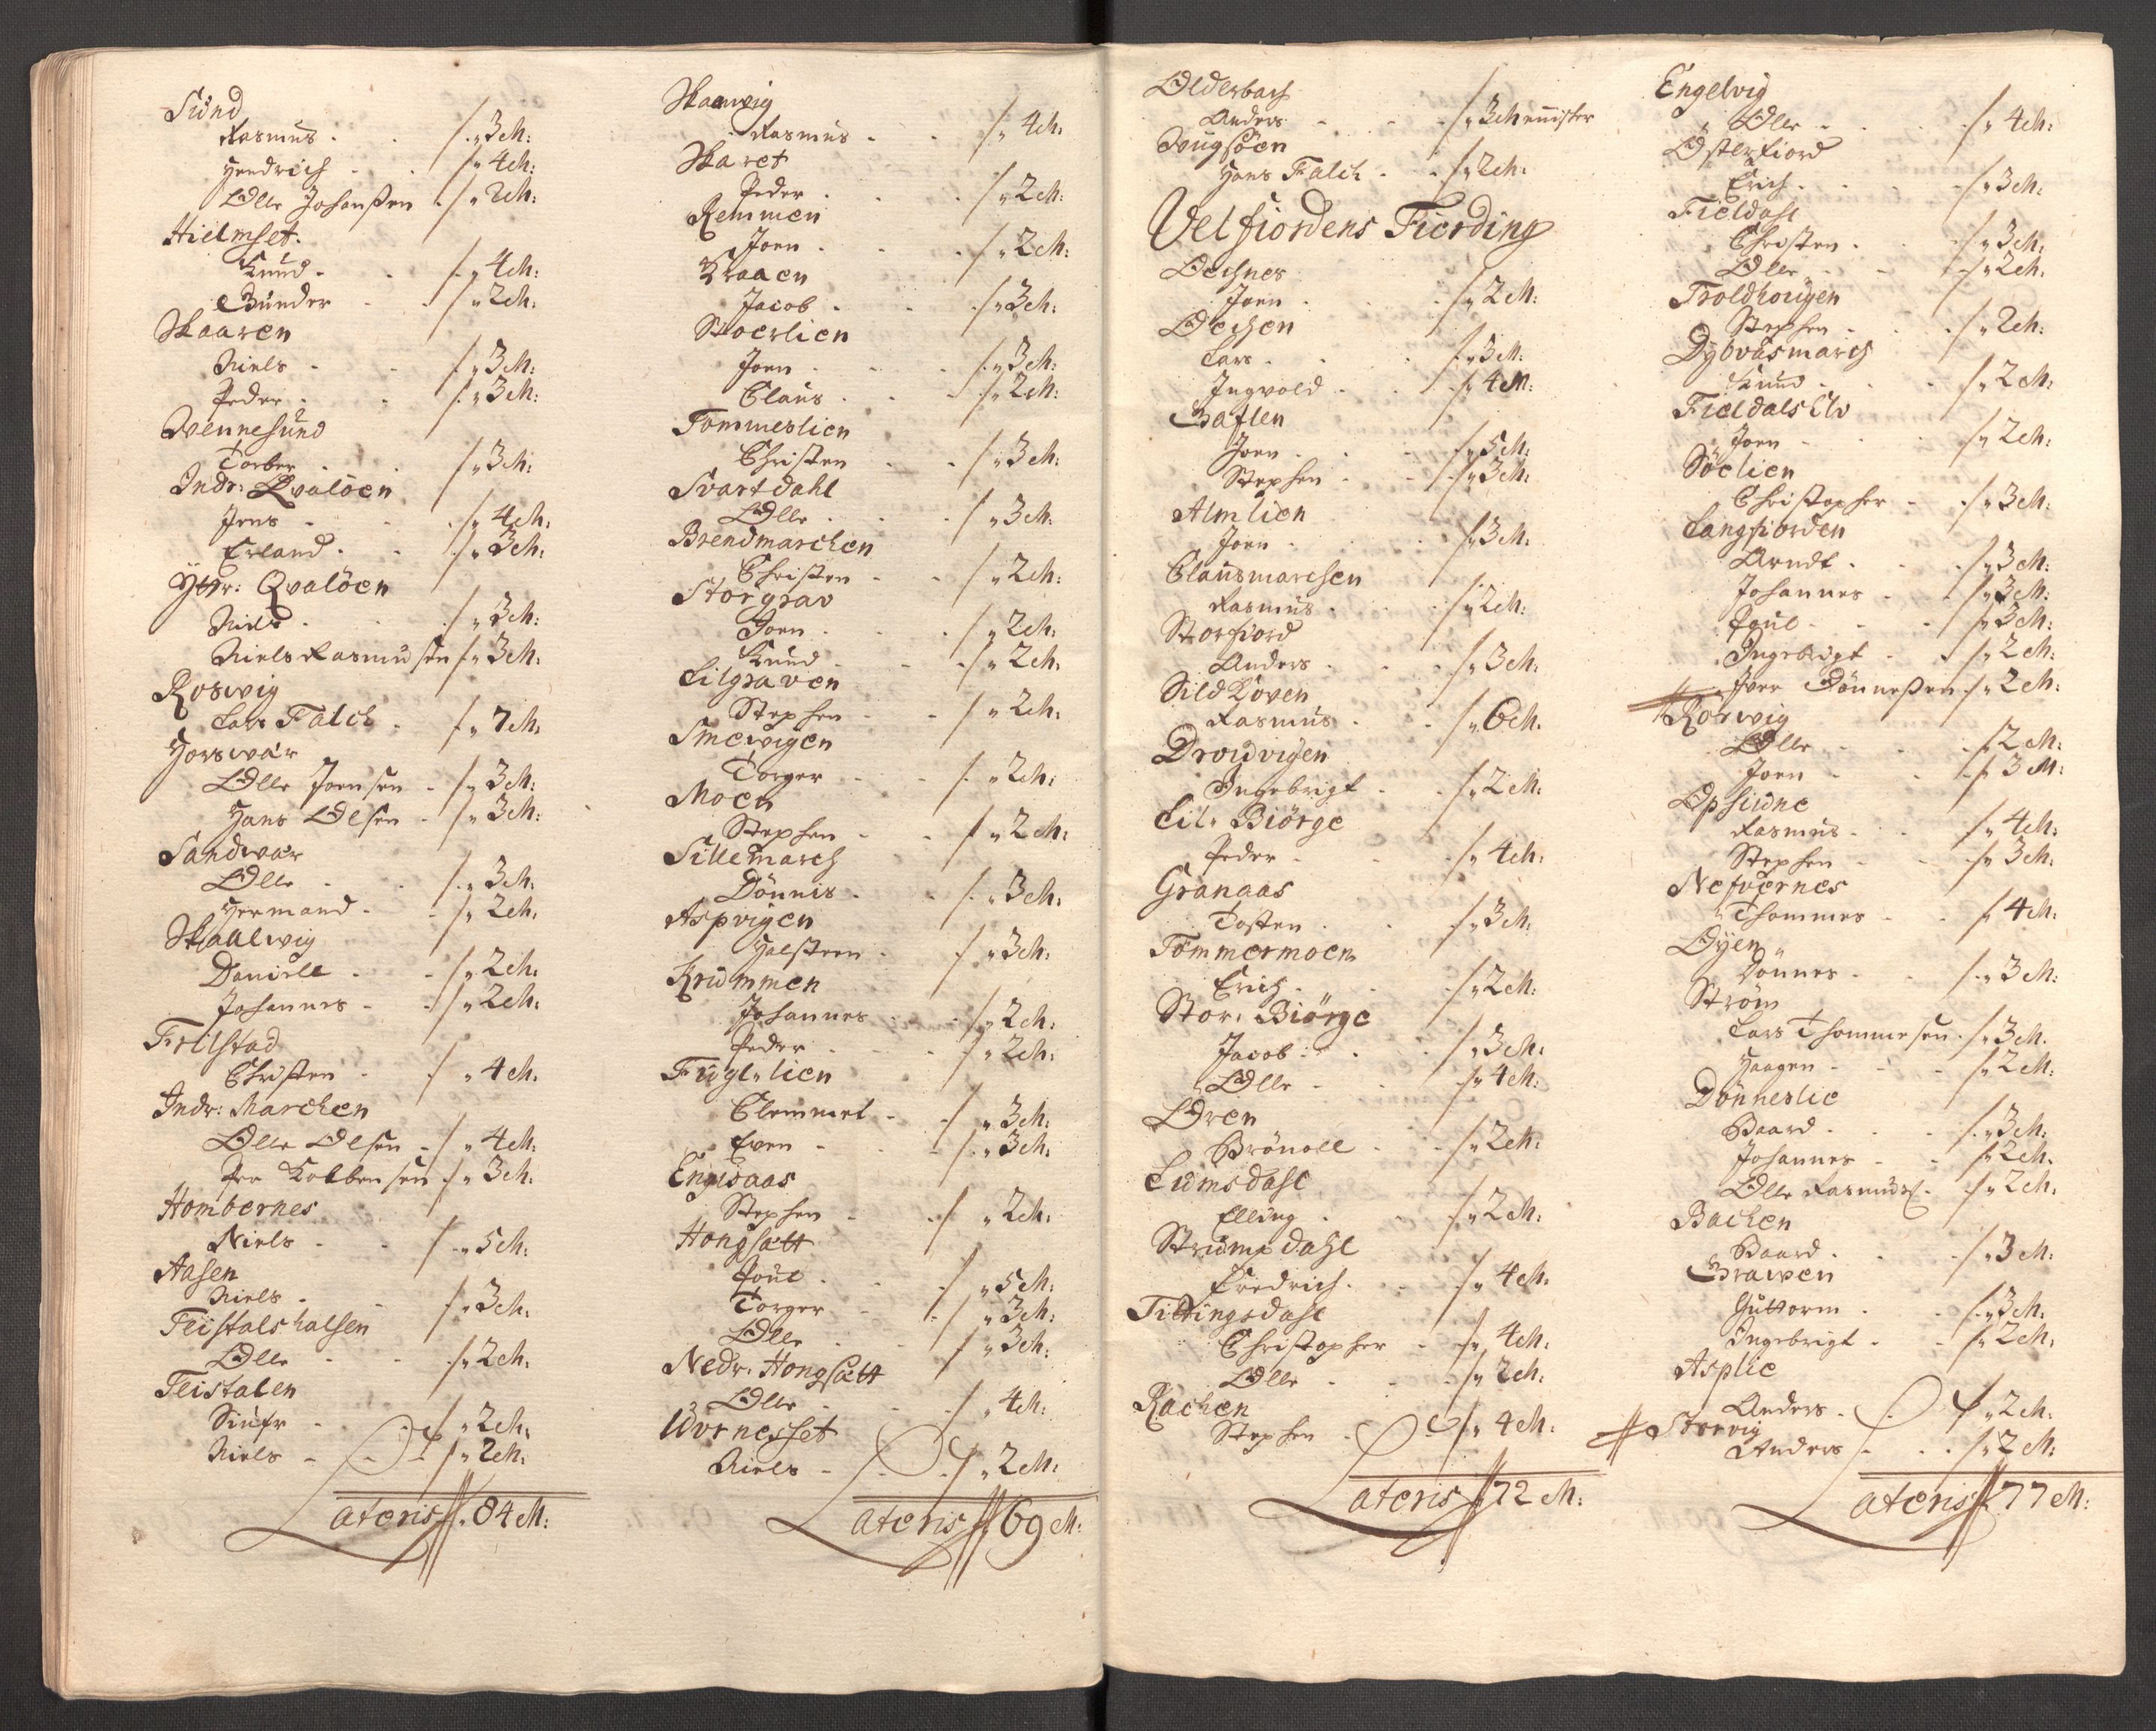 Sund
Rasmus - - /: „ 3 ch:
Hendrich - /: „ 4 ch:
Olle Johanßen - /: „ 2 ch:
Hielmset.
Knud - - /: „ 4 ch:
Gunder - - /: „ 2 ch:
Skaaren
Niels - - /: „ 3 ch:
Peder - - /: „ 3 ch:
Wennesund
Torber - - /: „ 3 ch:
Indr: Qvalöen
Jens - - /: „ 4 ch:
Erland - - /: „ 3 ch:
Yttr: Qvalöen
Niels - - /: „ 3 ch:
Niels Rasmusen /: „ 3 ch:
Roswig
Lars Falch - /: „ 7 ch:
Horswär
Olle Joensen - /: „ 3 ch:
Hans Olsen - /: „ 3 ch:
Sandwär
Olle - - /: „ 3 ch:
Hermand - - /: „ 2 ch:
Skaalwig
Daniell - - /: „ 2 ch:
Johannes - - /: „ 2 ch:
Frilstad
Christen - - /: „ 4 ch:
Indr: Marchen
Olle Olsen - /: „ 4 ch:
Per Kolbensen /: „ 3 ch:
Hombernes
Niels - - /: „ 5 ch:
Aasen
Niels - - /: „ 3 ch:
Teistalshalsen
Olle - - /: „ 2 ch:
Teistalen
Siufr - /: „ 2 ch:
Niels - - /: „ 2 ch:
Lateris /: 84 ch:
Skaawig
Rasmus - - /: „ 4 ch:
Skaret
Peder - - /: „ 2 ch:
Remmen
Joen - - /: „ 2 ch:
Kraaen
Jacob - - /: „ 3 ch:
Stoerlien
Joen - - /: „ 3 ch:
Claus - - /: „ 2 ch:
Tommerlien
Christen - - /: „ 3 ch:
Svartdahl
Olle - - /: „ 3 ch:
Brendmarchen
Christen - - /: „ 2 ch:
Storgrav
Joen - - /: „ 2 ch:
Knud - - /: „ 2 ch:
Lilgraven
Stephen - - /: „ 2 ch:
Smewigen
Torger - - /: „ 2 ch:
Moen
Stephen - - /: „ 2 ch:
Sillemarch
Dönnis - - /: „ 3 ch:
Aspvigen
Halsteen - /: „ 3 ch:
Krummen
Johannes - - /: „ 2 ch:
Peder - - /: „ 2 ch:
Fugl: lien
Clemmet - - /: „ 3 ch:
Even - - /: „ 3 ch:
Engisaas
Stephen - /: „ 2 ch:
Hongsätt
Poul - - /: „ 5 ch:
Torger - - /: „ 3 ch:
Olle - - /: „ 3 ch:
Nedr. Hongsätt
Olle - - /: „ 4 ch:
Uvrnesset
Niels - - /: „ 2 ch:
Lateris /: 69 ch:
Olderbach
Anders - - /: „ 3 ch ministr
Wugsöen
Hans Falch - /: „ 2 ch:
Velfiordens Fierding
Oexnes
Joen - - /: „ 2 ch:
Oexen
Lars - - /: „ 3 ch:
Ingvold - - /: „ 4 ch:
Gaslen
Joen - - /: „ 5 ch:
Stephen - - /: „ 3 ch:
Almlien
Joen - - /: „ 3 ch:
Clausmarchen
Rasmus - - /: „ 2 ch:
Storfiord
Anders - - /: „ 3 ch:
Sildhoven
Rasmus - - /: „ 6 ch:
Drowvigen
Ingebrigt - - /: „ 2 ch:
Lil: Biörge
Peder - - /: „ 4 ch:
Granaas
Tosten - - /: „ 3 ch:
Tömmermoen
Erich - - /: „ 2 ch:
Stor: Biörge
Jacob - - /: „ 3 ch:
Olle - - /: „ 4 ch:
Oren
Brönoll - - /: „ 2 ch:
Liumsdahl
Elling - - /: „ 2 ch:
Strumpdahl
Fredrich - - /: „ 4 ch:
Tiltingsdahl
Christopher - /: „ 4 ch:
Olle - - /: „ 2 ch:
Rachen
Stephen - - /: „ 4 ch:
Lateris /: 72 ch:
Engelvig
Olle - - /: „ 4 ch:
Østerfiord
Erich - - /: „ 3 ch:
Fieldahl
Christen - - /: „ 3 ch:
Olle - - /: „ 2 ch:
Troldhougen
Stephen - - /: „ 2 ch:
Dybvasmarch
Knud - - /: „ 2 ch:
Fieldals Elv
Joen - - /: „ 2 ch:
Söelien
Christopher - /: „ 3 ch:
Langfiorden
Arndt - - /: „ 3 ch:
Johannes - /: „ 3 ch:
Poul - - /: „ 3 ch:
Ingebrigt - /: „ 2 ch:
Iver Dönneßen /: „ 2 ch:
Rörwig
Olle - - /: 2 ch:
Joen - - /: 3 ch:
Opsiune
Rasmus - - /: „ 4 ch:
Stephen - - /: „ 3 ch:
Nefvernes
Thommes - - /: 4 ch:
Øyen
Dönnes - - /: „ 3 ch:
Ström
Lars Thommesen /: „ 3 ch:
Haagen - - /: „ 2 ch:
Dönneslie
Baard - - /: „ 3 ch:
Johannes - - /: 2 ch:
Olle Rasmuss: /: „ 2 ch:
Bachen
Baard - - /: „ 3 ch:
Grawen
Guttorm - - /: „ 3 ch:
Ingebrigt - - /: „ 2 ch:
Asplie
Anders - - /: „ 2 ch:
Storvig
Anders - - /: „ 2 ch:
Lateris /: 77 ch: